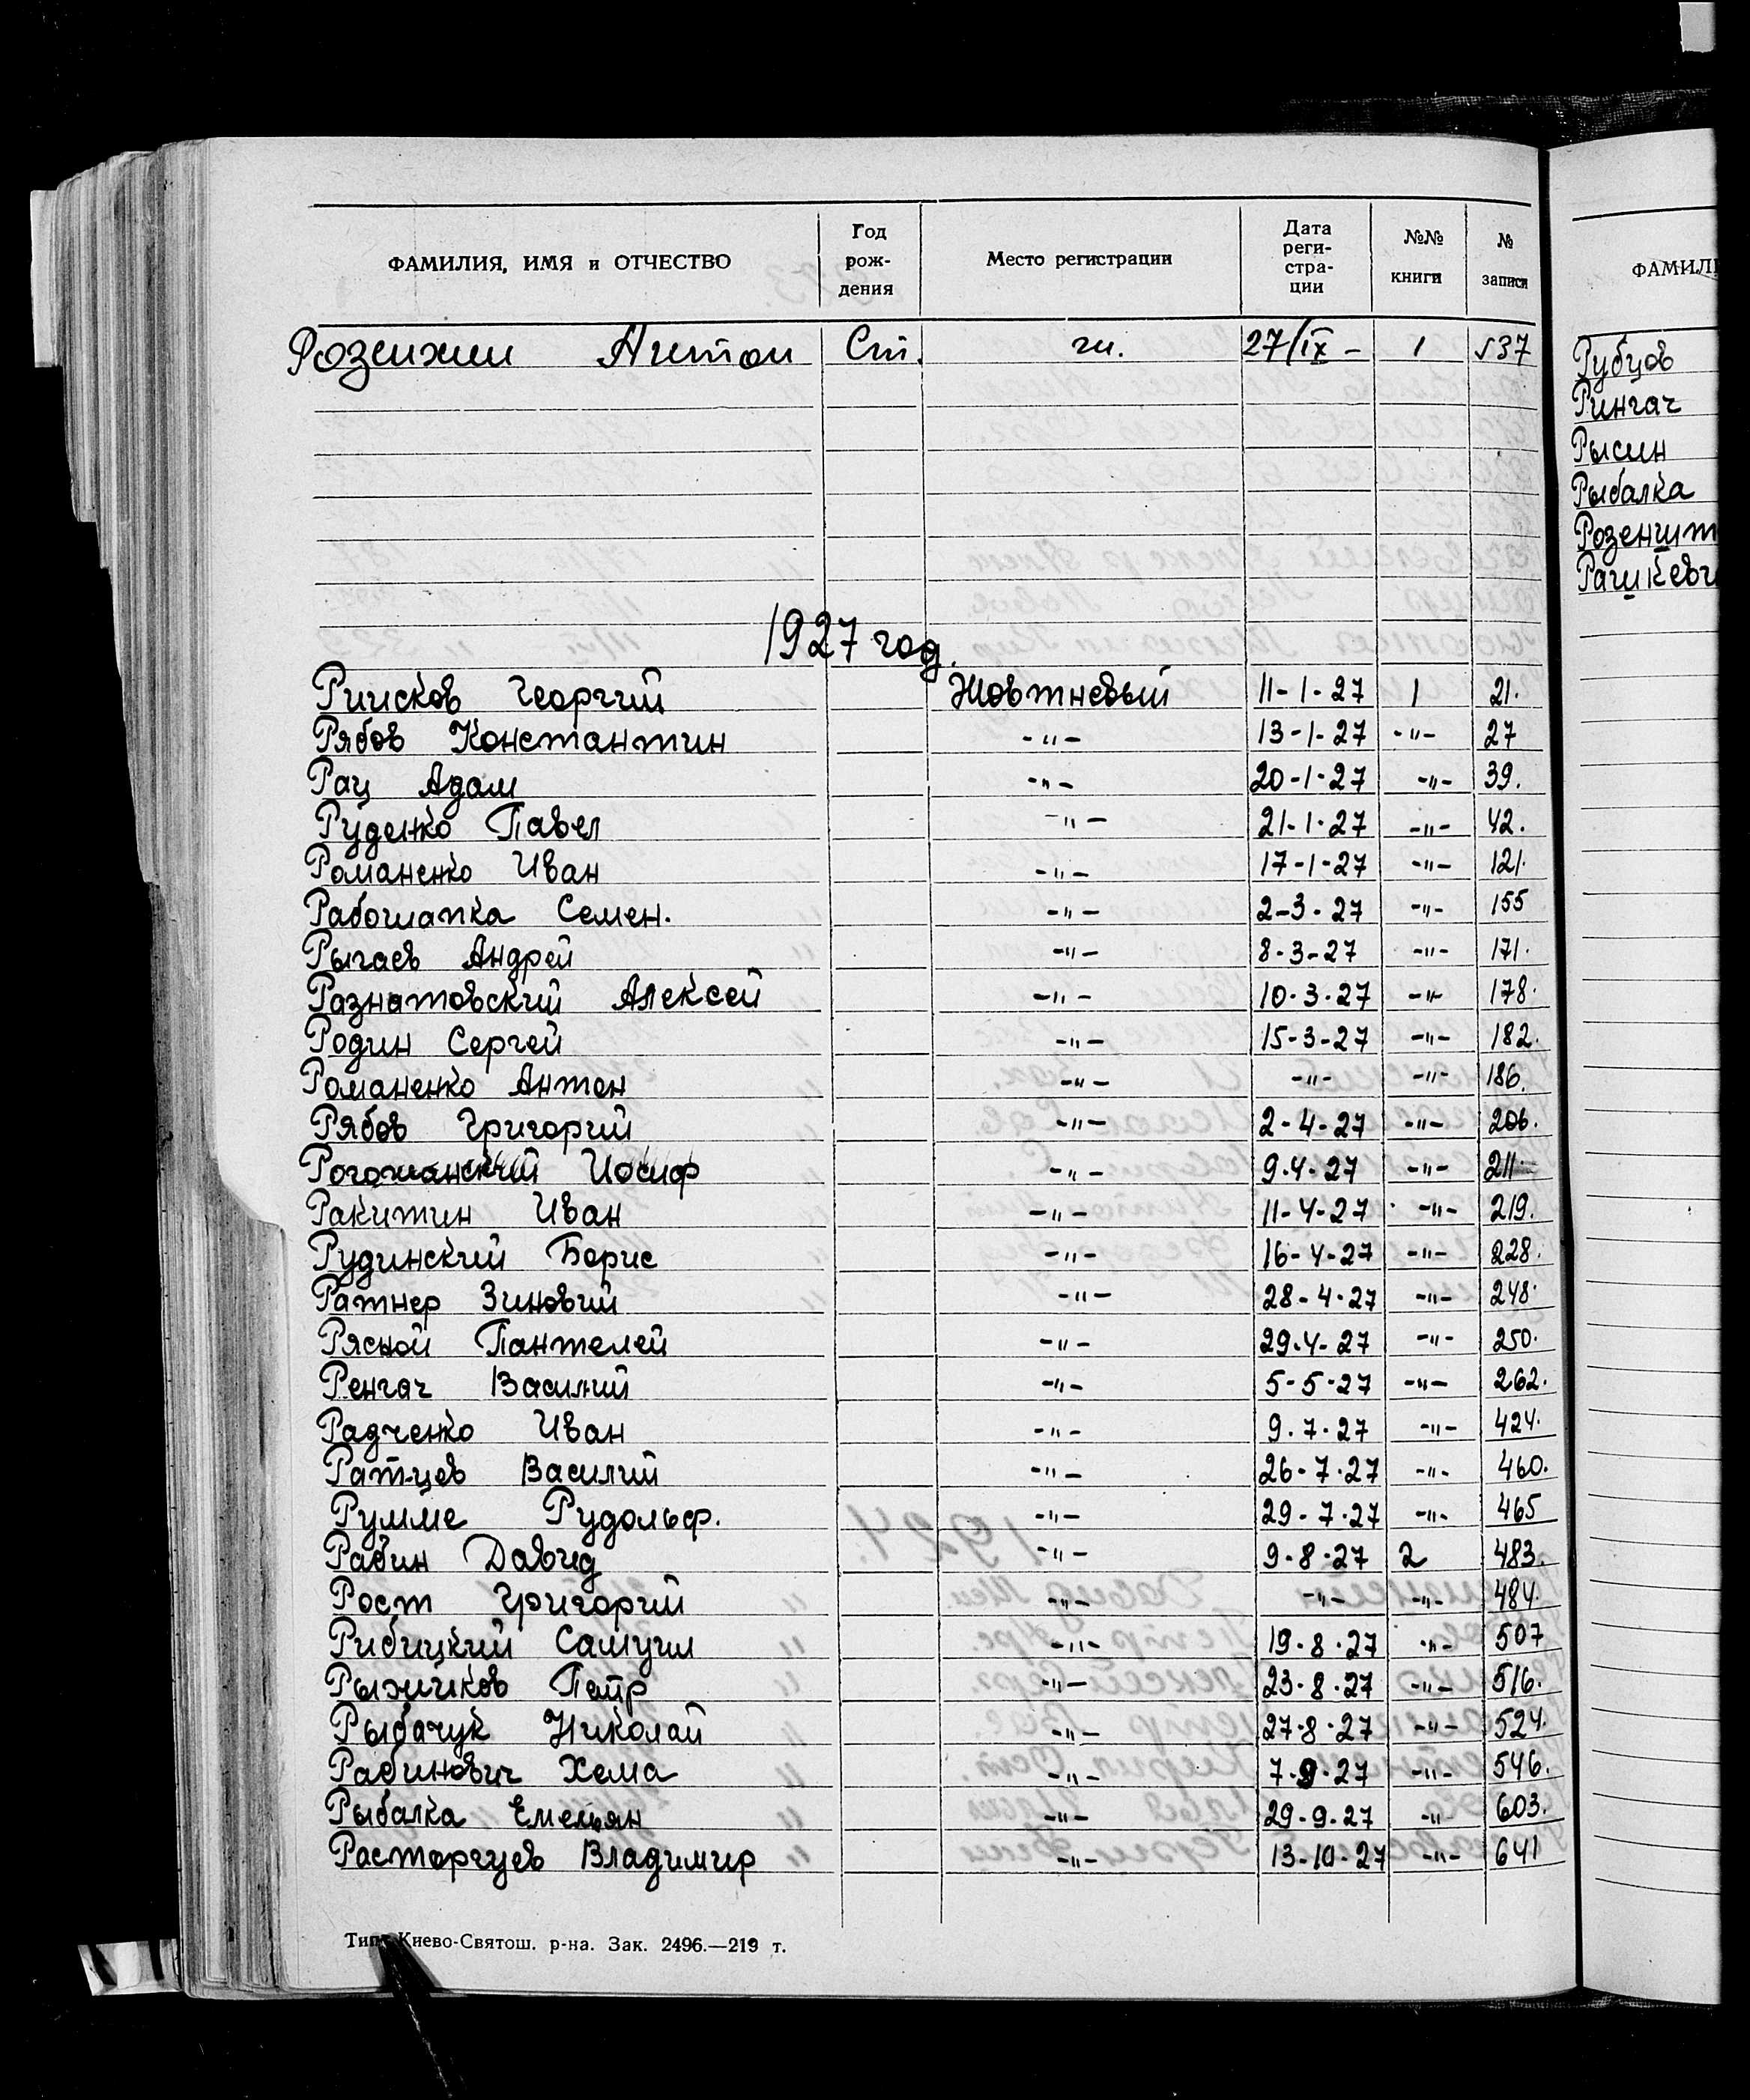 ФАМИЛИЯ, ИМЯ и ОТЧЕСТВО Год рож-дения Место регистрации Дата реги-стра-ции №№ книги № записи
Антон 27/IX - 1 537
1927 год.
Георгий Жовтневый 11-1-27 1 21.
Рябов Константин -"- 13-1-27 -"- 27
Рац Адам -"- 20-1-27 -"- 39.
Руденко Павел -"- 21-1-27 -"- 42.
Романенко Иван -"- 17-1-27 -"- 121.
Рабошапка Семен. -"- 2-3-27 -"- 155
Рыгаев Андрей -"- 8-3-27 -"- 171.
Разнатовский Алексей -"- 10-3-27 -"- 178.
Родин Сергей -"- 15-3-27 -"- 182.
Романенко Антон -"- -"- -"- 186.
Рябов Григорий -"- 2-4-27 -"- 206.
Рогожанский Иосиф -"- 9-4-27 -"- 211
Ракитин Иван -"- 11-4-27 -"- 219.
Рудинский Борис -"- 16-4-27 -"- 228.
Ратнер Зиновий -"- 28-4-27 -"- 248.
Рясной Пантелей -"- 29-4-27 -"- 250.
Ренгач Василий -"- 5-5-27 -"- 262.
Радченко Иван -"- 9.7.27 -"- 424.
Ратцев Василий -"- 26-7-27 -"- 460.
Румме Рудольф. -"- 29-7-27 -"- 465
Рабин Давид -"- 9-8-27 2 483.
Рост Григорий -"- -"- -"- 484.
Рибицкий Самуил -"- 19-8-27 -"- 507
Рыжиков Петр -"- 23-8-27 -"- 516.
Рыбачук Николай -"- 27-8-27 -"- 524.
Рабинович Хема -"- 7-9-27 -"- 546.
Рыбалка Емельян -"- 29-9-27 -"- 603.
Расторгуев Владимир -"- 13-10-27 -"- 641
Тип. Киево-Святош. р-на. Зак. 2496.—219 т.
ФАМИЛИ
Рубцов
Рингач
Рысин
Рыбалка
Розеншт
Рашкеви